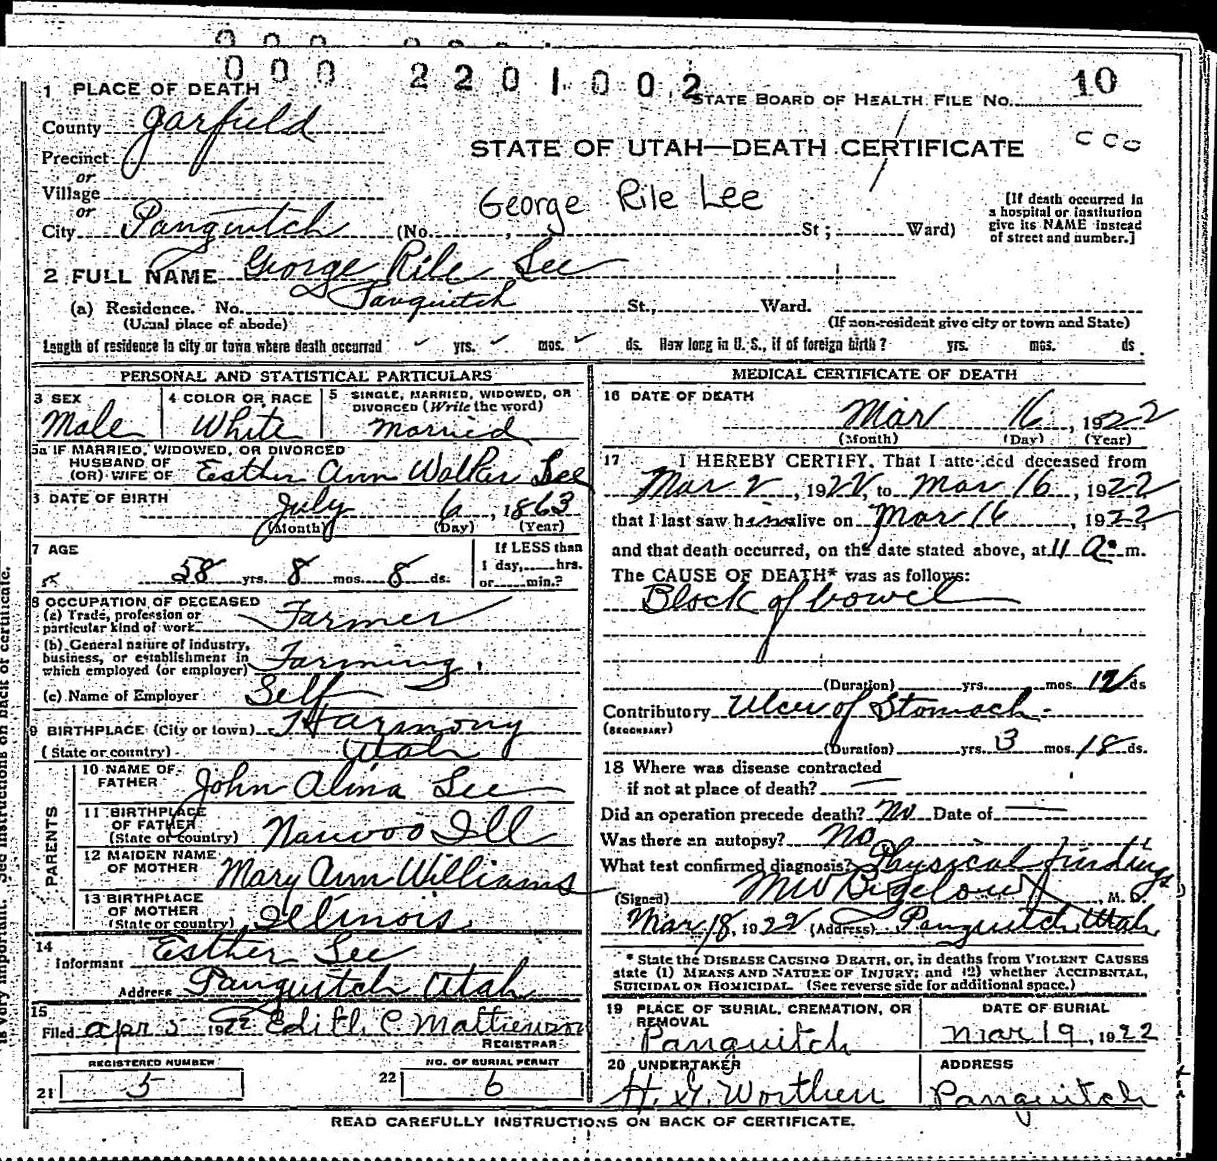 000 2201002
1 PLACE OF DEATH
STATE BOARD OF HEALTH FILE NO. 10
County Garfield
STATE OF UTAH—DEATH CERTIFICATE
Precinct
or
Village
George Rile Lee
or
City Panguitch (No. , St; Ward)
[If death occurred in
a hospital or institution
give its NAME instead
of street and number.]
2 FULL NAME George Rile Lee
(a) Residence. No. Panguitch St., Ward.
(Usual place of abode) (If non-resident give city or town and State)
Length of residence in city or town where death occurred yrs. mos. ds. How long in U. S., if of foreign birth? yrs. mos. ds.
PERSONAL AND STATISTICAL PARTICULARS
3 SEX Male
4 COLOR OR RACE White
5 SINGLE, MARRIED, WIDOWED, OR
DIVORCED (Write the word)
Married
5a IF MARRIED, WIDOWED, OR DIVORCED
HUSBAND OF
(OR) WIFE OF Esther Ann Walker Lee
6 DATE OF BIRTH
July 6, 1863
(Month) (Day) (Year)
7 AGE
58 yrs. 8 mos. 8 ds.
If LESS than
1 day, hrs.
or min.?
8 OCCUPATION OF DECEASED
(a) Trade, profession or
particular kind of work Farmer
(b) General nature of industry,
business, or establishment in
which employed (or employer) Farming
(c) Name of Employer Self
9 BIRTHPLACE (City or town) Harmony
(State or country) Utah
PARENTS
10 NAME OF
FATHER John Alma Lee
11 BIRTHPLACE
OF FATHER
(State or country) Nauvoo Ill
12 MAIDEN NAME
OF MOTHER Mary Ann Williams
13 BIRTHPLACE
OF MOTHER
(State or country) Illinois
14
Informant Esther Lee
Address Panguitch Utah
15
Filed Apr 5 1922 Edith C
REGISTRAR
REGISTERED NUMBER
21 5
NO. OF BURIAL PERMIT
22 6
MEDICAL CERTIFICATE OF DEATH
16 DATE OF DEATH
Mar 16, 1922
(Month) (Day) (Year)
17 I HEREBY CERTIFY, That I attended deceased from
Mar 2, 1922, to Mar 16, 1922
that I last saw him alive on Mar 16, 1922
and that death occurred, on the date stated above, at 11 a. m.
The CAUSE OF DEATH* was as follows:
Block of bowel
(Duration) yrs. mos. ds
Contributory Ulcer of Stomach
(SECONDARY)
(Duration) yrs. 3 mos. 18 ds.
18 Where was disease contracted
if not at place of death?
Did an operation precede death? No Date of
Was there an autopsy? No
What test confirmed diagnosis? Physical findings
(Signed) M W Bigelow, M. D.
Mar 18, 1922 (Address) Panguitch, Utah
* State the DISEASE CAUSING DEATH, or, in deaths from VIOLENT CAUSES
state (1) MEANS AND NATURE OF INJURY; and (2) whether ACCIDENTAL,
SUICIDAL OR HOMICIDAL. (See reverse side for additional space.)
19 PLACE OF BURIAL, CREMATION, OR
REMOVAL
Panguitch
DATE OF BURIAL
Mar 19, 1922
20 UNDERTAKER
H. G. Worthen
ADDRESS
Panguitch
READ CAREFULLY INSTRUCTIONS ON BACK OF CERTIFICATE.
is very important. See instructions on back of certificate.